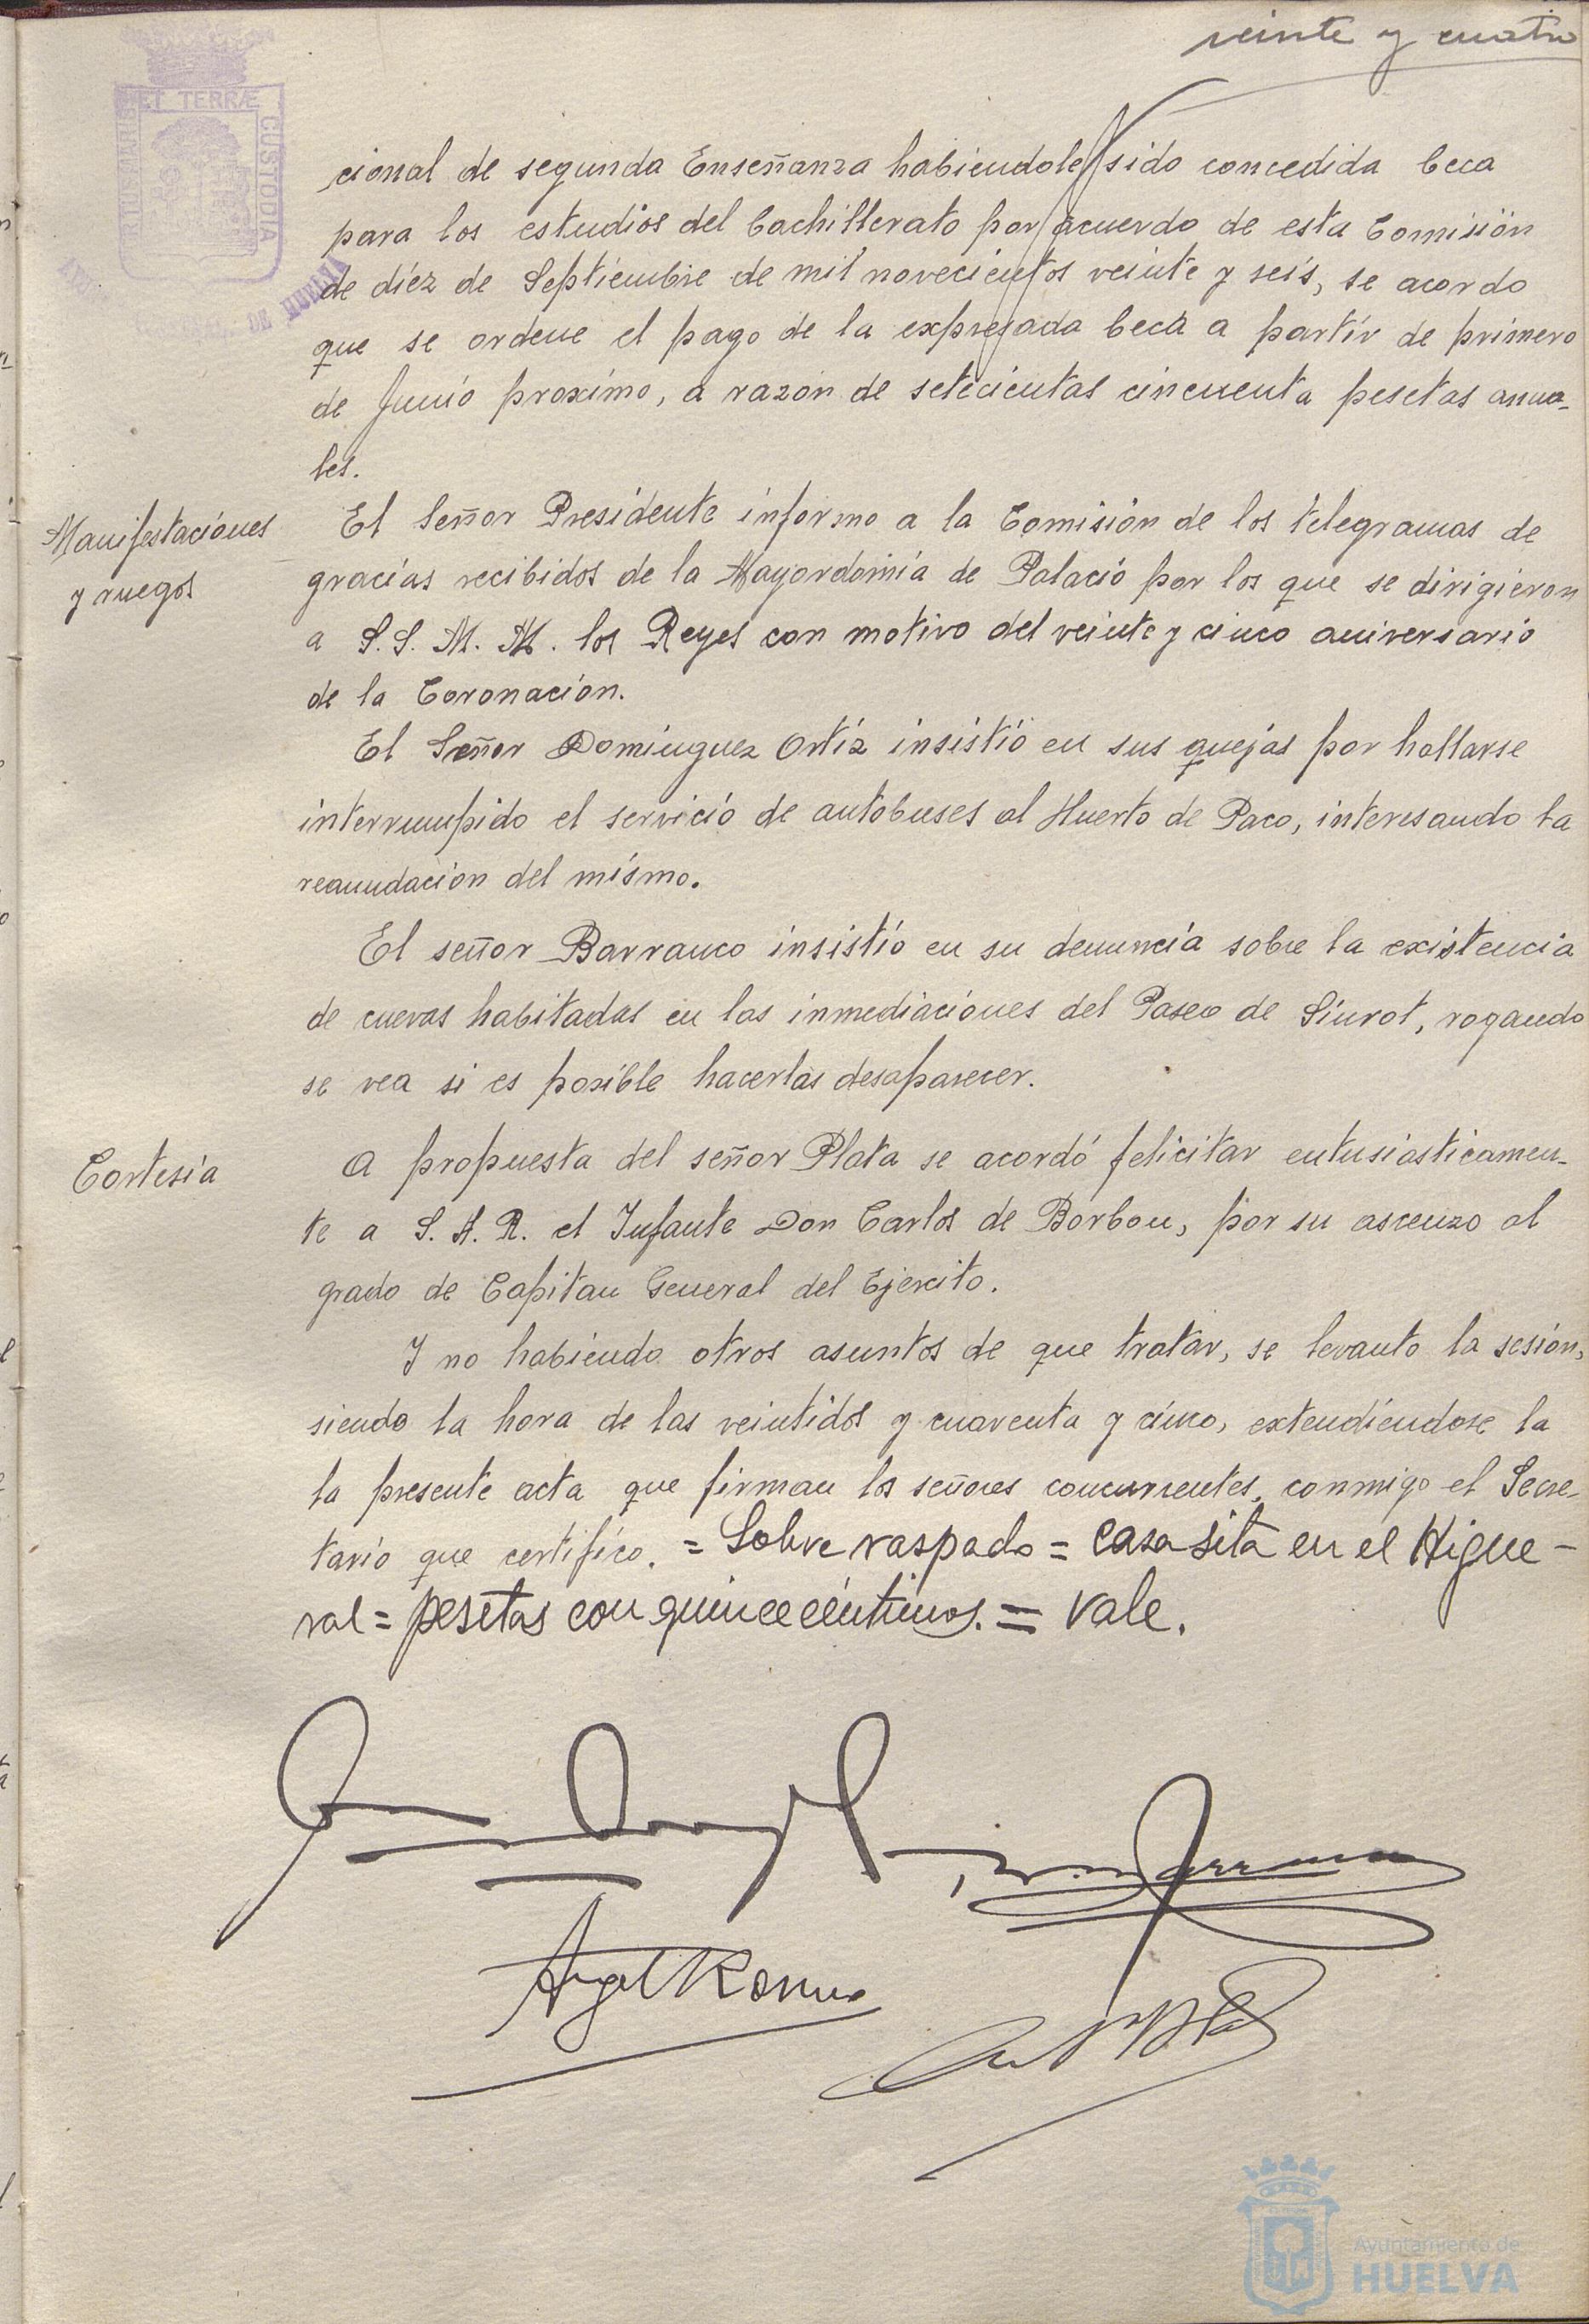 veinte y cuatro
ET TERRÆ
CUSTODIA
DE HUELVA
cional de segunda Enseñanza habiendole sido concedida beca
para los estudios del bachillerato por acuerdo de esta Comisión
de diez de Septiembre de mil novecientos veinte y seis, se acordo
que se ordene el pago de la expresada beca a partir de primero
de Junio proximo, a razón de setecientas cincuenta pesetas anua-
les.
Manifestaciones
y ruegos
El Señor Presidente informo a la Comisión de los telegramas de
gracias recibidos de la Mayordomía de Palacio por los que se dirigieron
a S.S. M.M. los Reyes con motivo del veinte y cinco aniversario
de la Coronación.
El Señor Dominguez Ortiz insistió en sus quejas por hallarse
interrumpido el servicio de autobuses al Huerto de Paco, interesando la
reanudacion del mismo.
El señor Barranco insistio en su denuncia sobre la existencia
de cuevas habitadas en las inmediaciones del Paseo de Siurot, rogando
se vea si es posible hacerlas desaparecer.
Cortesia
A propuesta del señor Plata se acordó felicitar entusiasticamen-
te a S. A. R. el Infante Don Carlos de Borbon, por su ascenzo al
grado de Capitan General del Ejercito.
Y no habiendo otros asuntos de que tratar, se levanto la sesión,
siendo la hora de las veintidos y cuarenta y cinco, extendiendose la
la presente acta que firman los señores concurrentes, conmigo el Secre-
tario que certifico. = Sobre raspado = casa sita en el Higue-
ral = pesetas con quince céntimos. = Vale.
Angel Romero
Ayuntamiento de
HUELVA